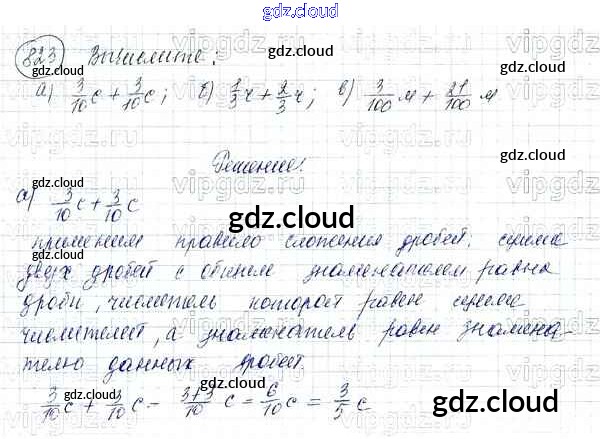 gdz.cloud
823 Вычислите:
а) 3/10 с + 3/10 с; б) 1/3 ч + 2/3 ч; в) 3/100 м + 21/100 м
Решение:
а) 3/10 с + 3/10 с
применим правило сложения дробей: сумма
двух дробей с общим знаменателем равна
дроби, числитель которой равен сумме
числителей, а знаменатель равен знамена-
телю данных дробей.
3/10 с + 3/10 с = 3+3/10 с = 6/10 с = 3/5 с
gdz.cloud